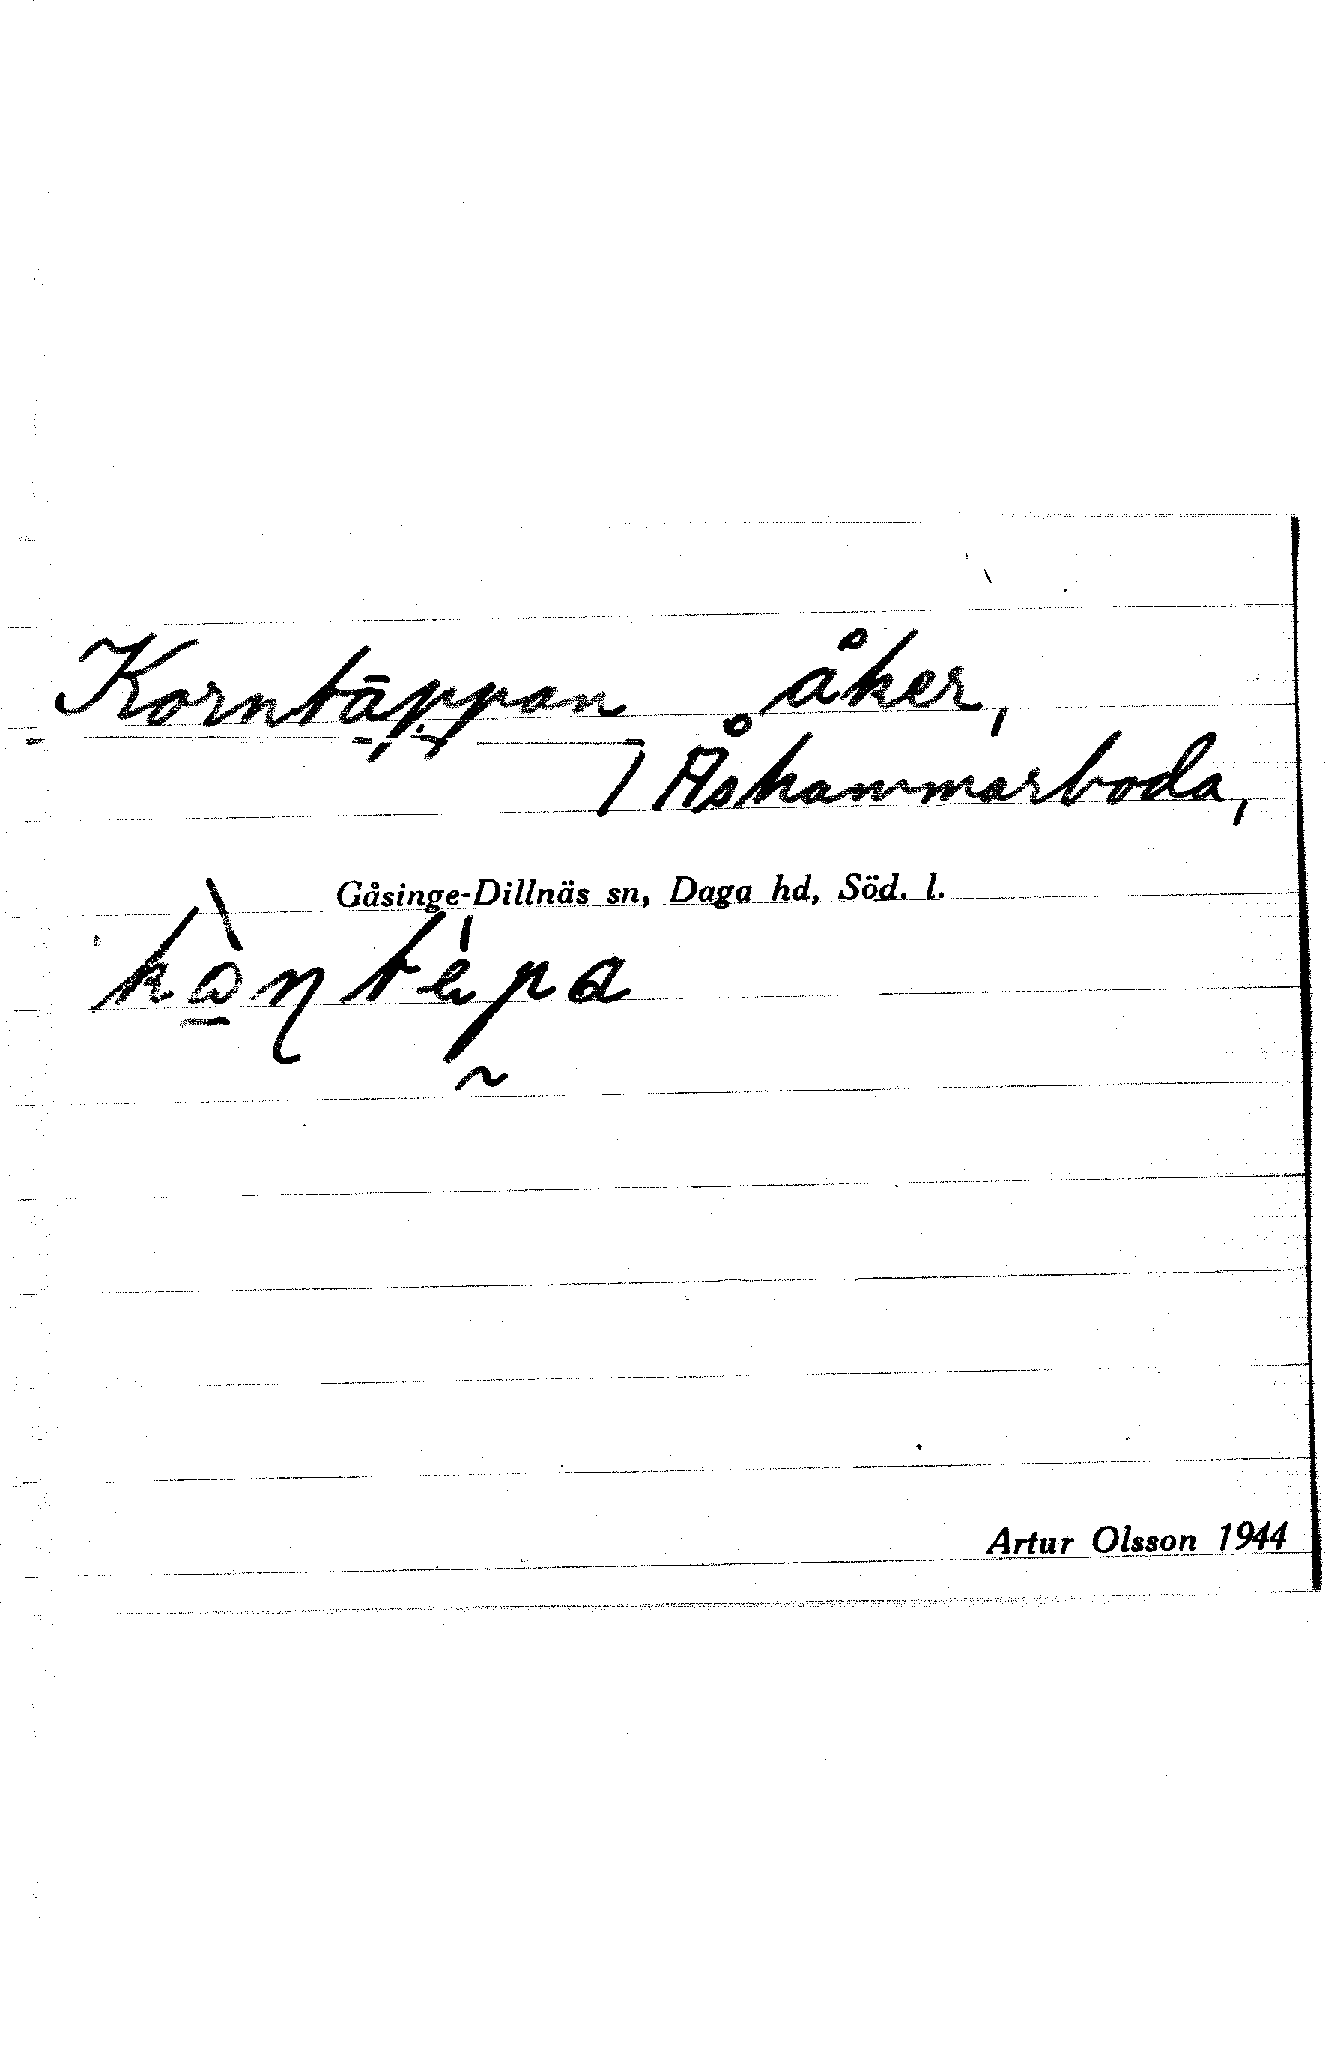 Korntäppan åker,
Åskammarboda,
Gåsinge-Dillnäs sn, Daga hd, Söd. l.
Artur Olsson 1944